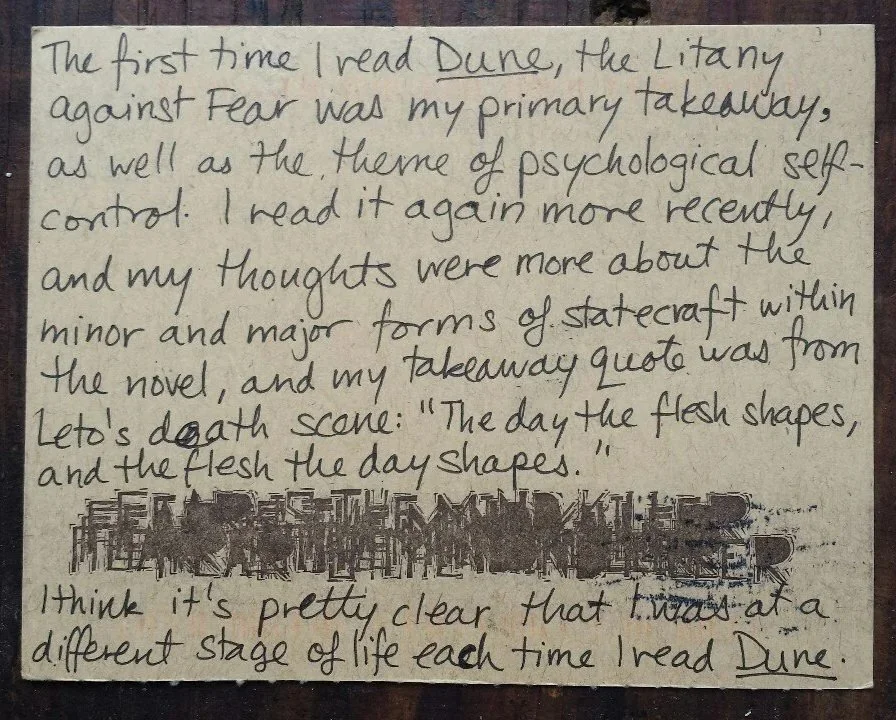 The first time I read Dune, the Litany
against Fear was my primary takeaway,
as well as the theme of psychological self-
control. I read it again more recently,
and my thoughts were more about the
minor and major forms of statecraft within
the novel, and my takeaway quote was from
Leto's death scene: "The day the flesh shapes,
and the flesh the day shapes."
FEAR IS THE MIND KILLER
I think it's pretty clear that I was at a
different stage of life each time I read Dune.